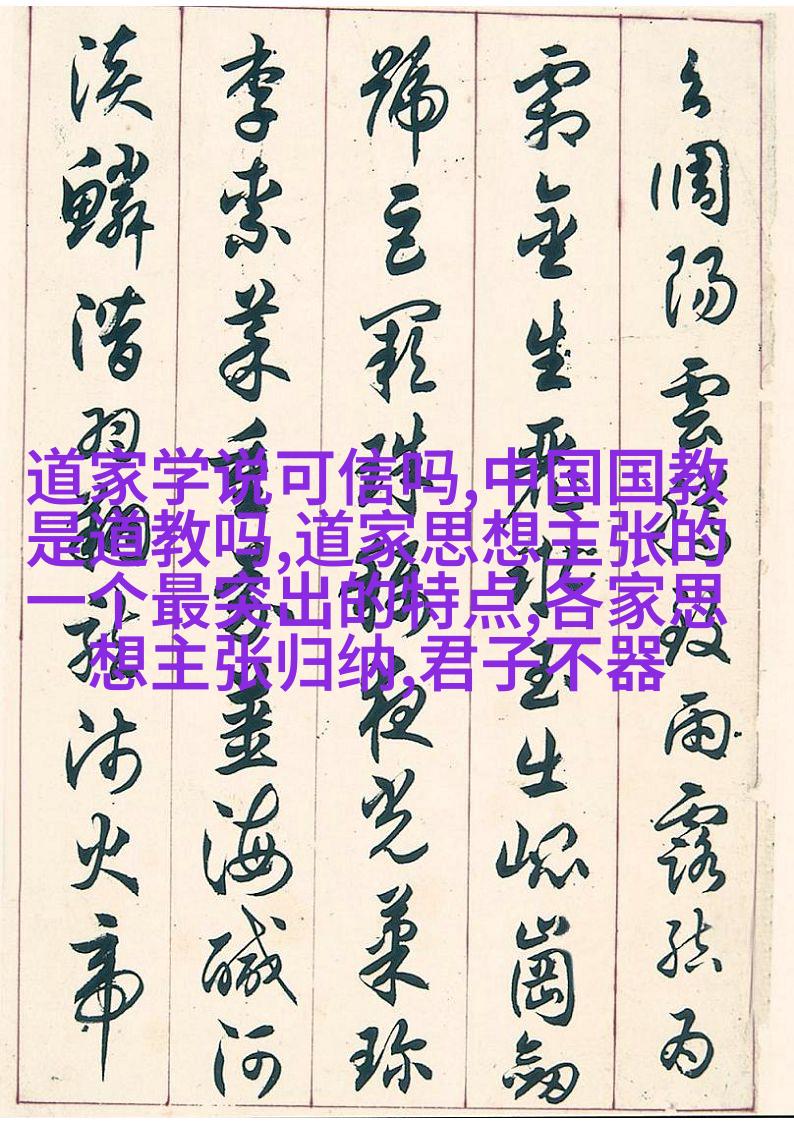 呂調陽雲騰致雨露結為
霜金生麗水玉出崑岡劍
號巨闕珠稱夜光菓珍
李柰菜重芥薑海鹹河
淡鱗潛羽翔龍師火帝
道家学说可信吗,中国国教
是道教吗,道家思想主张的
一个最突出的特点,各家思
想主张归纳,君子不器